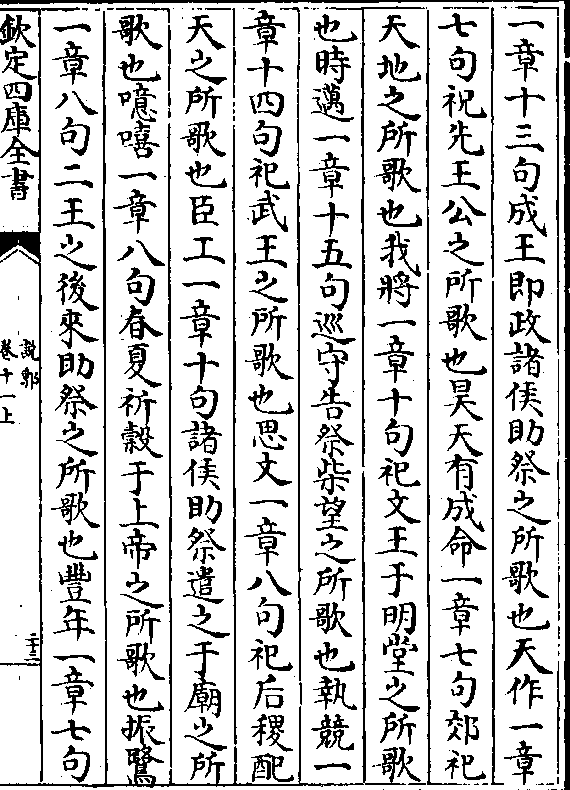 一章十三句成王即政諸侯助祭之所歌也天作一章
七句祝先王公之所歌也昊天有成命一章七句郊祀
天地之所歌也我將一章十句祀文王于明堂之所歌
也時邁一章十五句巡守告祭柴望之所歌也執競一
章十四句祀武王之所歌也思文一章八句祀后稷配
天之所歌也臣工一章十句諸侯助祭遣之于廟之所
歌也噫嘻一章八句春夏祈穀于上帝之所歌也振鷺
一章八句二王之後來助祭之所歌也豐年一章七句
欽定四庫全書
說郛
卷十一上
二十三